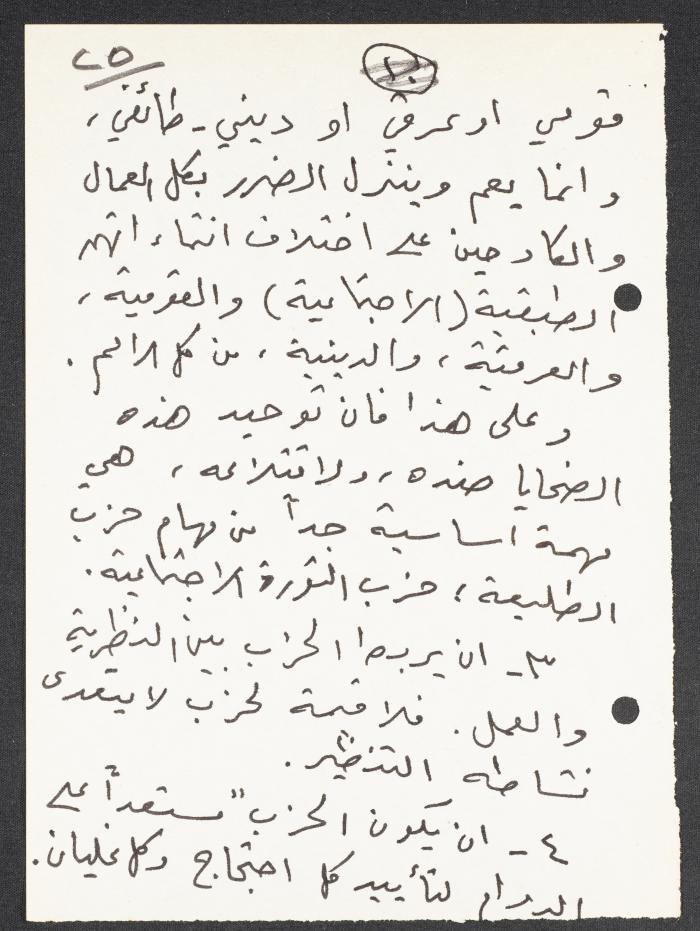 ٢٥
قومي او عرقي او ديني - طائفي،
وانما يعم وينزل الضرر بكل العمال
والكادحين على اختلاف انتماءاتهم
الطبقية (الاجتماعية) والقومية،
والعرقية، والدينية، من كل الامم.
وعلى هذا فان توحيد هذه
الضحايا ضده، ولاقتلاعه، هي
مهمة اساسية جداً من مهام حزب
الطليعة؛ حزب الثورة الاجتماعية.
٣- ان يربط الحزب بين النظرية
والعمل. فلا قيمة لحزب لا يتعدى
نشاطه التنظير.
٤- ان يكون الحزب "مستعداً على
الدوام لتأييد كل احتجاج وكل غليان.